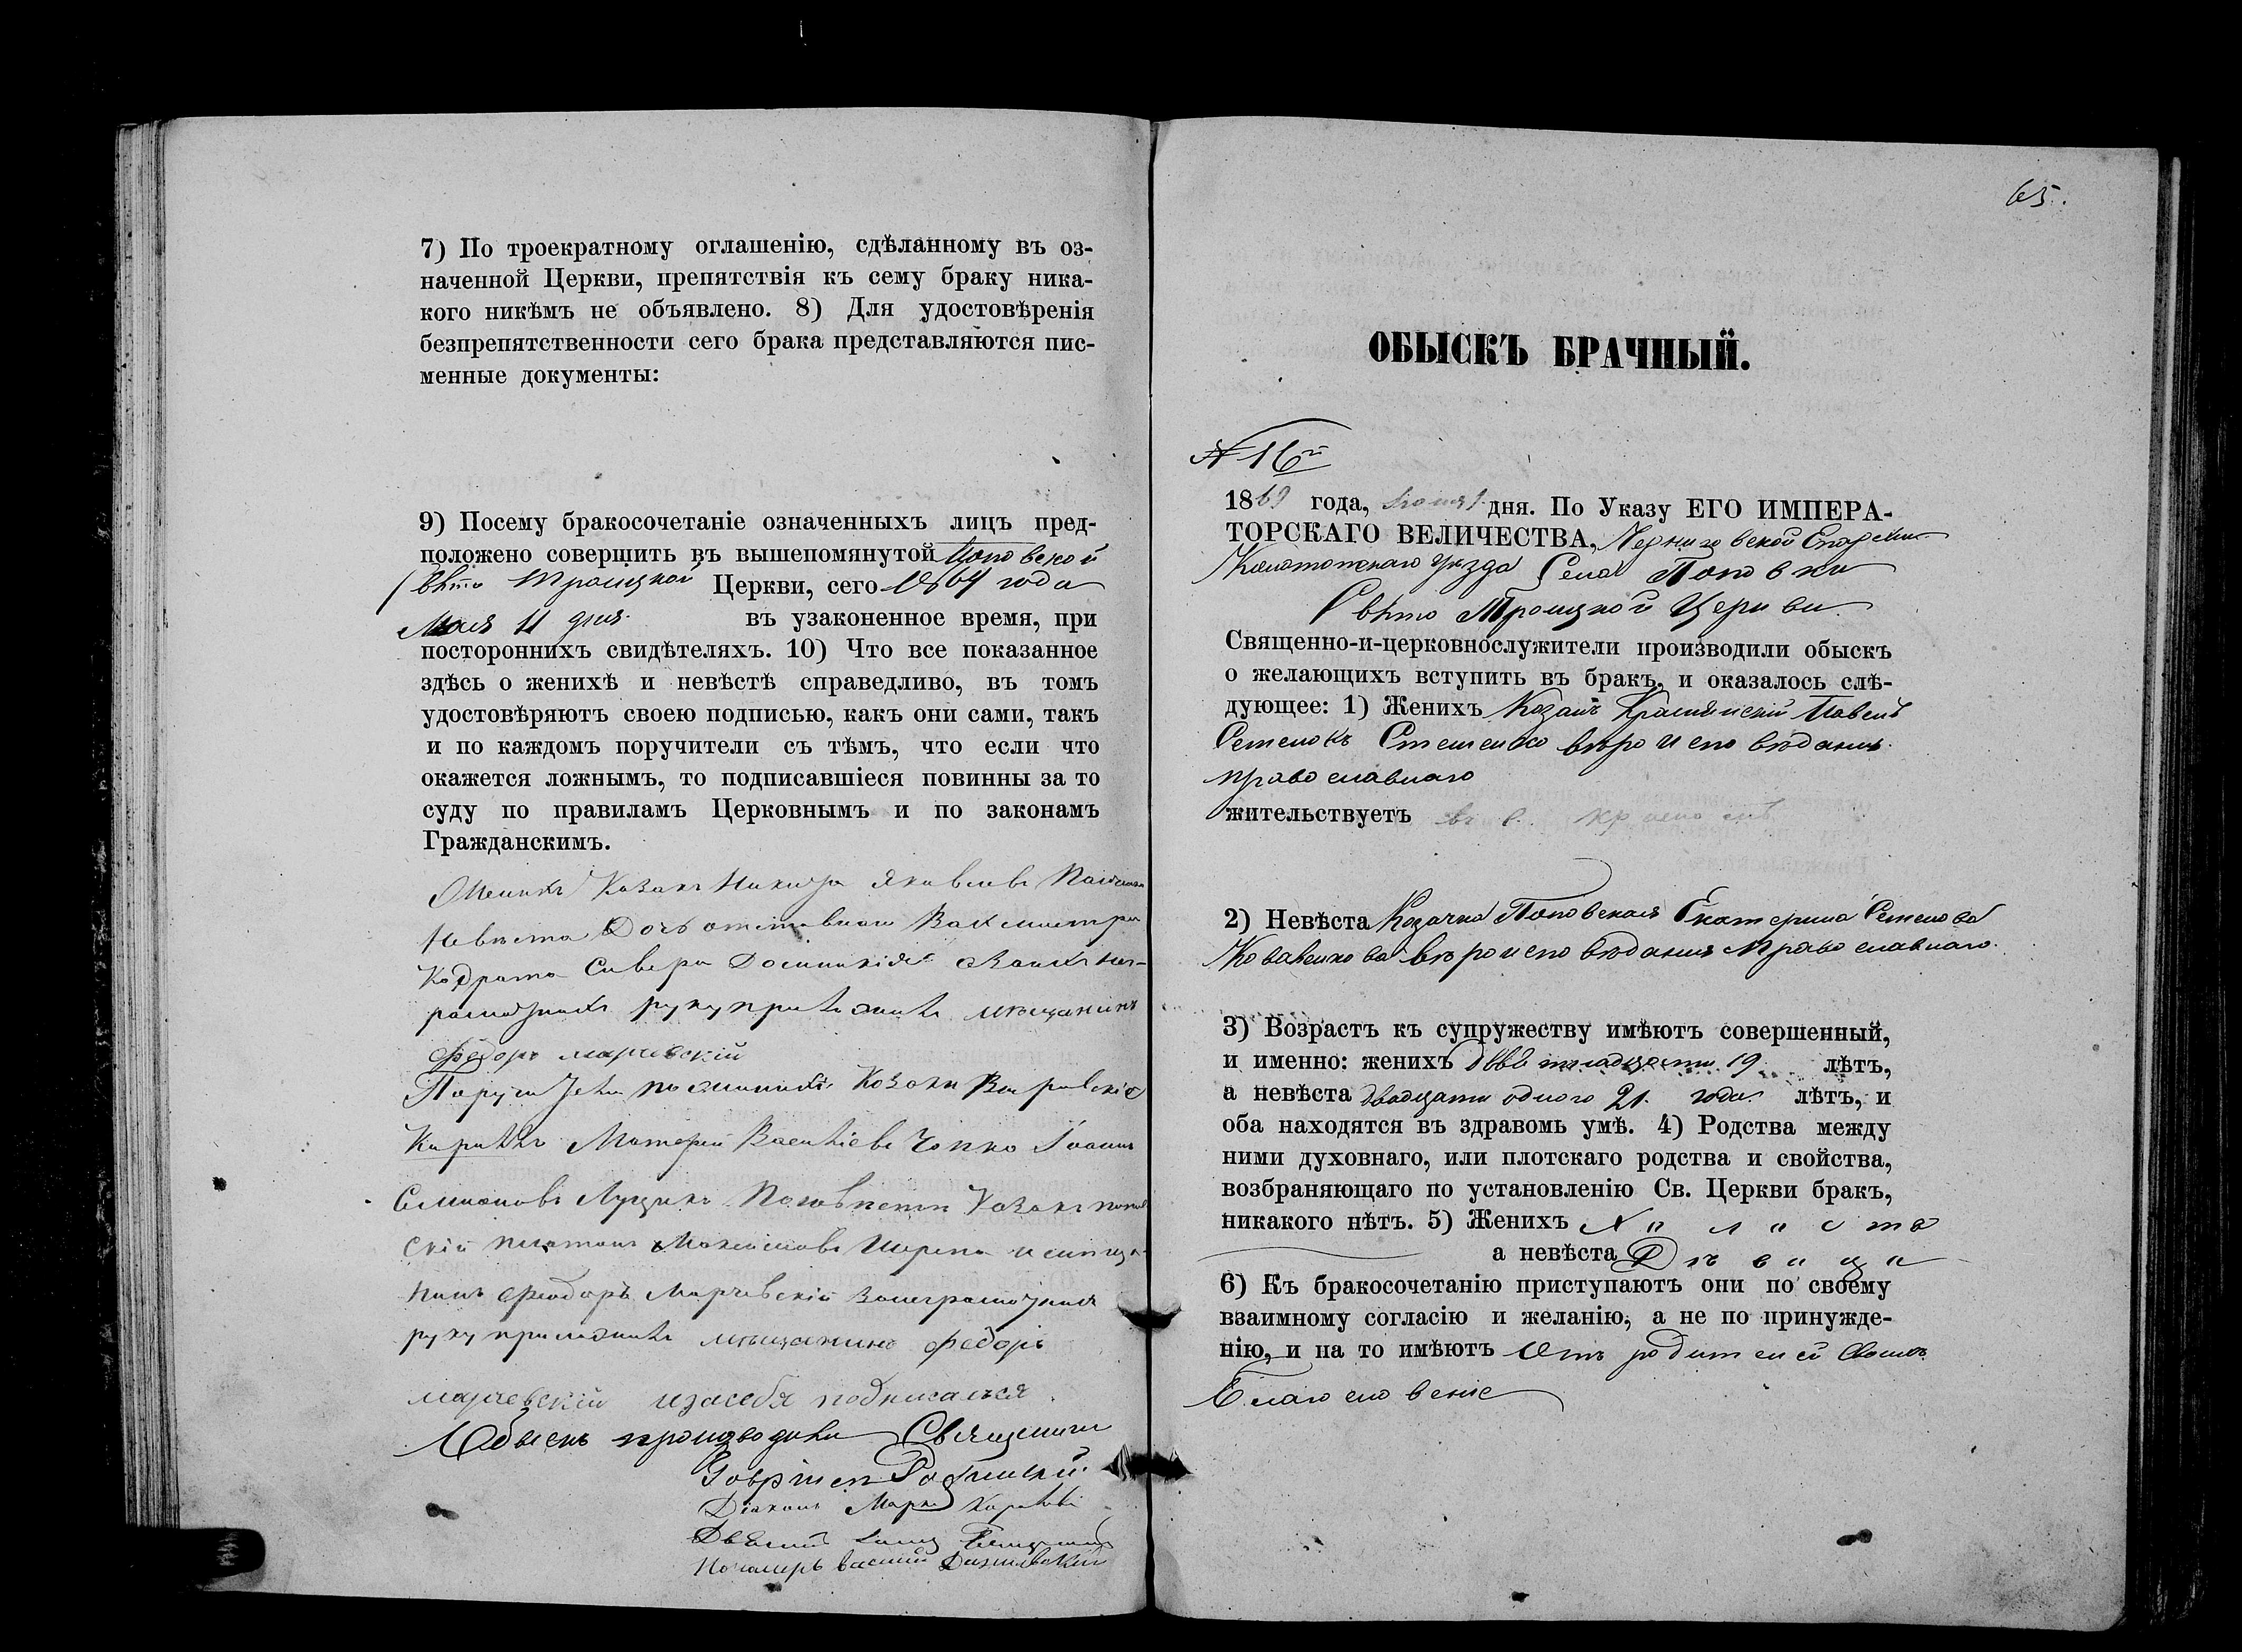 7) По троекратному оглашенію, сдѣланному въ оз-
наченной Церкви, препятствія къ сему браку ника-
кого никѣмъ не объявлено. 8) Для удостовѣренія
безпрепятственности сего брака представляются пис-
менные документы:
9) Посему бракосочетаніе означенныхъ лицъ пред-
положено совершить въ вышепомянутой Поповской
Свѣто Троицкой Церкви, сего 1869 года
Мая 11 дня въ узаконенное время, при
постороннихъ свидѣтеляхъ. 10) Что все показанное
здѣсь о женихѣ и невѣстѣ справедливо, въ томъ
удостовѣряютъ своею подписью, какъ они сами, такъ
и по каждомъ поручители съ тѣмъ, что если что
окажется ложнымъ, то подписавшіеся повинны за то
суду по правиламъ Церковнымъ и по законамъ
Гражданскимъ.
Женихъ Козакъ Никита Яковлевъ
Невѣста Дочь отставнаго Вахмистра
Кодрата Сивера
руку приложилъ мѣщанинъ
Федоръ марчевскій
Поручители по женихѣ Козаки
Василіевъ Чопко Іоаннъ
Симоновъ Лущикъ По невѣсти Козакъ попов
скій Платонъ Максимовъ Шерепа и мѣща-
нинъ Феодоръ Марчевскій
руку приложилъ мѣщанинъ федоръ
марчевскій и за себя подписался
Обыскъ производили Священникъ
Гавріилъ
Діаконъ Марко
Пономарь василій
65.
ОБЫСКЪ БРАЧНЫЙ.
№ 16й
1869 года, дня. По Указу ЕГО ИМПЕРА-
ТОРСКАГО ВЕЛИЧЕСТВА, Черниговской Епархіи
Конотопскаго Уѣзда Села Поповки
Свѣто Троицкой Церкви
Священно-и-церковнослужители производили обыскъ
о желающихъ вступить въ бракъ, и оказалось слѣ-
дующее: 1) Женихъ Козакъ Павелъ
Семеновъ Стеценко вѣроисповѣданія
православнаго
жительствуетъ въ с.
2) Невѣста Козачка Поповская Екатерина Семенова
Коваленкова вѣроисповѣданія Православнаго.
3) Возрастъ къ супружеству имѣютъ совершенный,
и именно: женихъ Деветнадцати 19 лѣтъ,
а невѣста двадцати одного 21. года. лѣтъ, и
оба находятся въ здравомъ умѣ. 4) Родства между
ними духовнаго, или плотскаго родства и свойства,
возбраняющаго по установленію Св. Церкви бракъ,
никакого нѣтъ. 5) Женихъ Холостъ
а невѣста Дѣвица
6) Къ бракосочетанію приступаютъ они по своему
взаимному согласію и желанію, а не по принужде-
нію, и на то имѣютъ Отъ родителей своихъ
Благословеніе